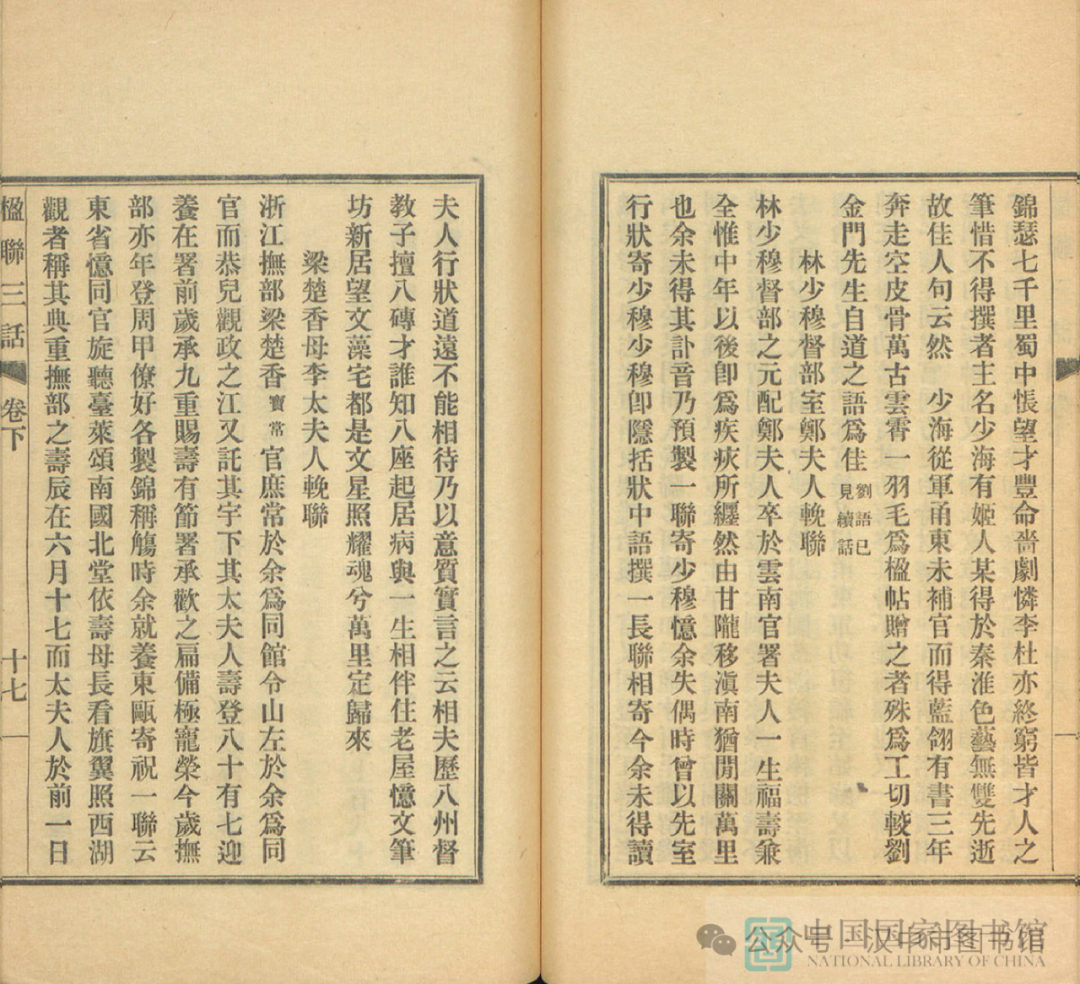 錦瑟七千里蜀中悵望才豐命嗇劇憐李杜亦終窮皆才人之
筆惜不得撰者主名少海有姬人某得於秦淮色藝無雙先逝
故佳人句云然　少海從軍甬東未補官而得藍翎有書三年
奔走空皮骨萬古雲霄一羽毛爲楹帖贈之者殊爲工切較劉
金門先生自道之語爲佳劉語已見續話
林少穆督部室鄭夫人輓聯
林少穆督部之元配鄭夫人卒於雲南官署夫人一生福壽兼
全惟中年以後卽爲疾疢所纒然由甘隴移滇南猶閒關萬里
也余未得其訃音乃預製一聯寄少穆憶余失偶時曾以先室
行狀寄少穆少穆卽隱括狀中語撰一長聯相寄今余未得讀
夫人行狀道遠不能相待乃以意質實言之云相夫歷八州督
教子擅八磚才誰知八座起居病與一生相伴住老屋憶文筆
坊新居望文藻宅都是文星照耀魂兮萬里定歸來
梁楚香母李太夫人輓聯
浙江撫部梁楚香寶常官庶常於余爲同館令山左於余爲同
官而恭兒觀政之江又託其宇下其太夫人壽登八十有七迎
養在署前歲承九重賜壽有節署承歡之扁備極寵榮今歲撫
部亦年登周甲僚好各製錦稱觴時余就養東甌寄祝一聯云
東省憶同官旋聽臺萊頌南國北堂依壽母長看旗翼照西湖
觀者稱其典重撫部之壽辰在六月十七而太夫人於前一日
楹聯三話　卷下　十七
中国国家图书馆
NATIONAL LIBRARY OF CHINA
公众号·汉中市图书馆